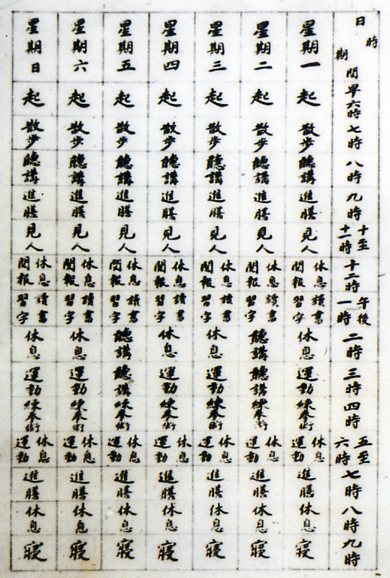 日時期間 早六時 七時 八時 九時 十至十一時 十二時 午後一時 二時 三時 四時 五至六時 七時 八時 九時
星期一 起 散步 聽講 進膳 見人 休息閱報 讀書習字 休息 運動 練拳術 休息運動 進膳 休息 寢
星期二 起 散步 聽講 進膳 見人 休息閱報 讀書習字 聽講 聽講 練拳術 休息運動 進膳 休息 寢
星期三 起 散步 聽講 進膳 見人 休息閱報 讀書習字 休息 運動 練拳術 休息運動 進膳 休息 寢
星期四 起 散步 聽講 進膳 見人 休息閱報 讀書習字 休息 運動 練拳術 休息運動 進膳 休息 寢
星期五 起 散步 聽講 進膳 見人 休息閱報 讀書習字 聽講 聽講 練拳術 休息運動 進膳 休息 寢
星期六 起 散步 聽講 進膳 見人 休息閱報 讀書習字 休息 運動 練拳術 休息運動 進膳 休息 寢
星期日 起 散步 聽講 進膳 見人 休息閱報 讀書習字 休息 運動 練拳術 休息運動 進膳 休息 寢